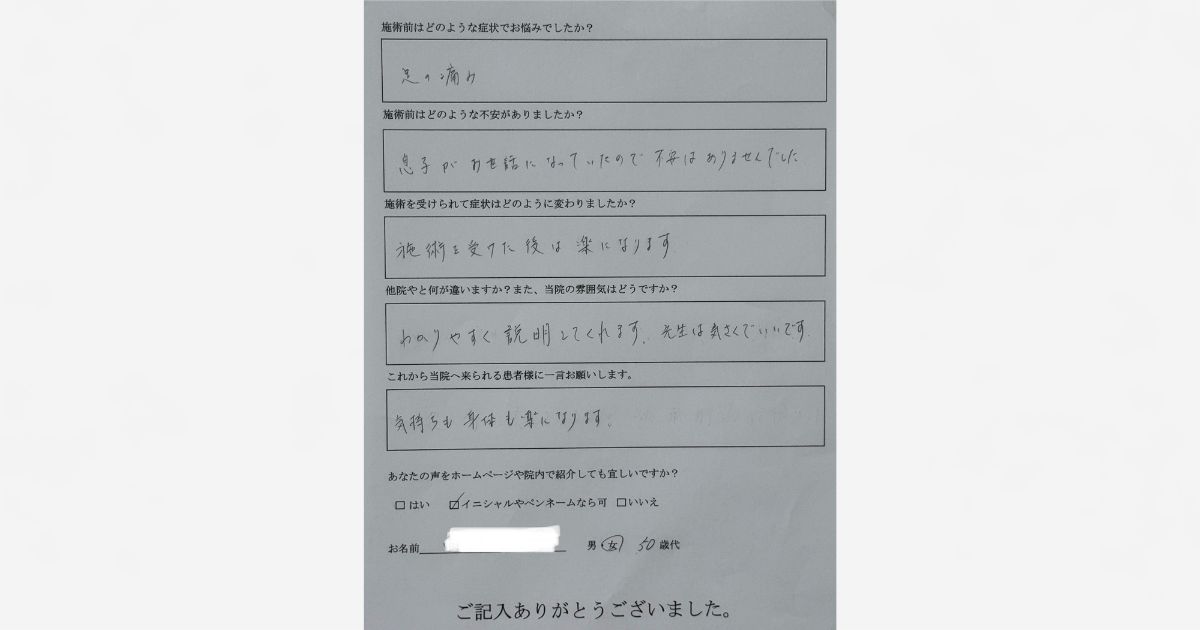 施術前はどのような症状でお悩みでしたか？
足の痛み
施術前はどのような不安がありましたか？
息子がお世話になっていたので不安はありませんでした
施術を受けられて症状はどのように変わりましたか？
施術を受けた後は楽になります
他院やと何が違いますか？また、当院の雰囲気はどうですか？
わかりやすく説明してくれます。先生は気さくでいいです。
これから当院へ来られる患者様に一言お願いします。
気持ちも身体も楽になります。
あなたの声をホームページや院内で紹介しても宜しいですか？
□はい ☑イニシャルやペンネームなら可 □いいえ
お名前 男・女 50歳代
ご記入ありがとうございました。